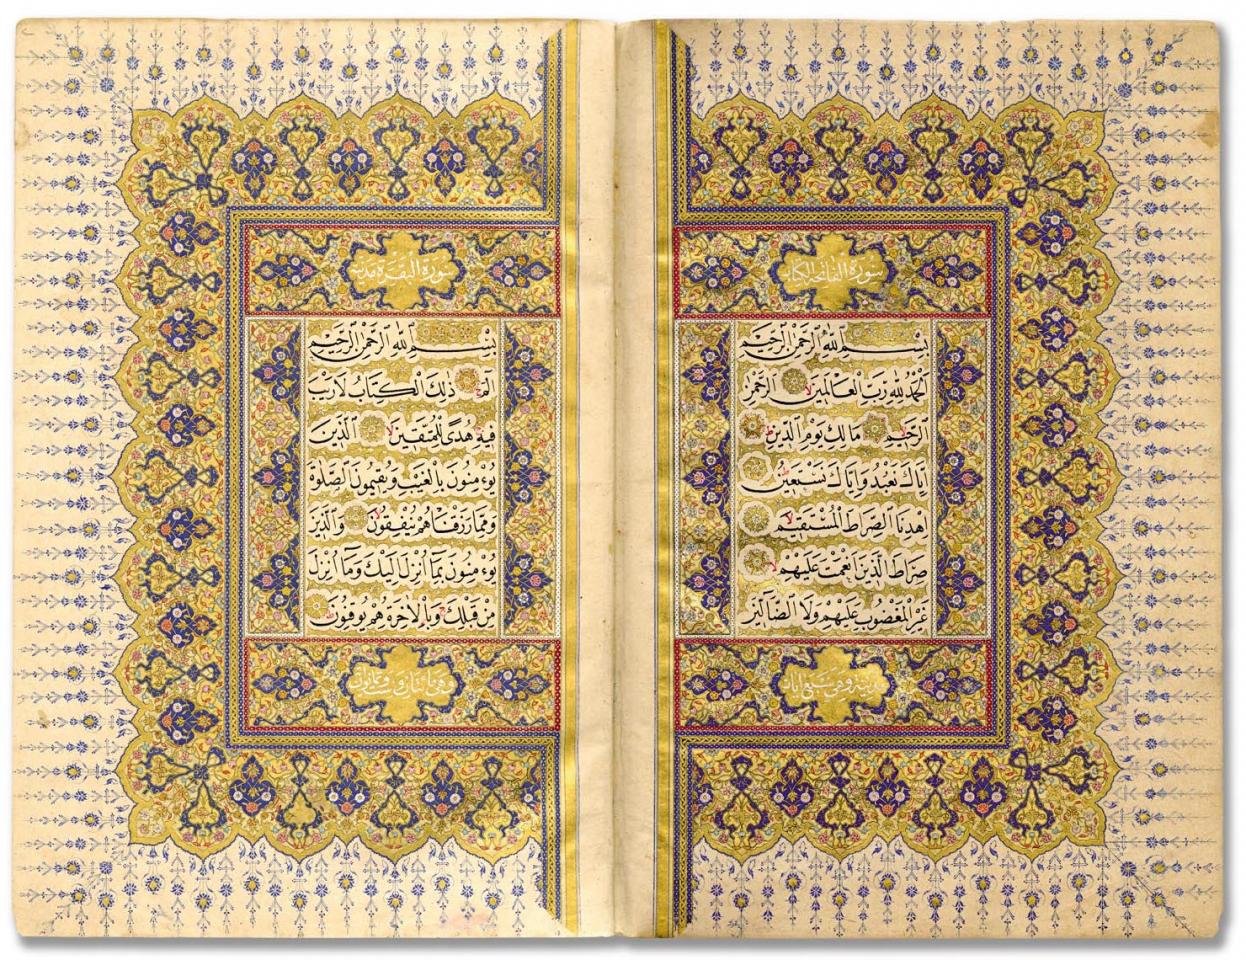 سورة الفاتحة الكتاب
بسم الله الرحمن الرحيم
الحمد لله رب العالمين الرحمن
الرحيم مالك يوم الدين
اياك نعبد واياك نستعين
اهدنا الصراط المستقيم
صراط الذين انعمت عليهم
غير المغضوب عليهم ولا الضالين
وهي سبع ايات
سورة البقرة مدنية
بسم الله الرحمن الرحيم
الم ذلك الكتاب لا ريب
فيه هدى للمتقين الذين
يؤمنون بالغيب ويقيمون الصلوة
ومما رزقناهم ينفقون والذين
يؤمنون بما انزل اليك وما انزل
من قبلك وبالاخرة هم يوقنون